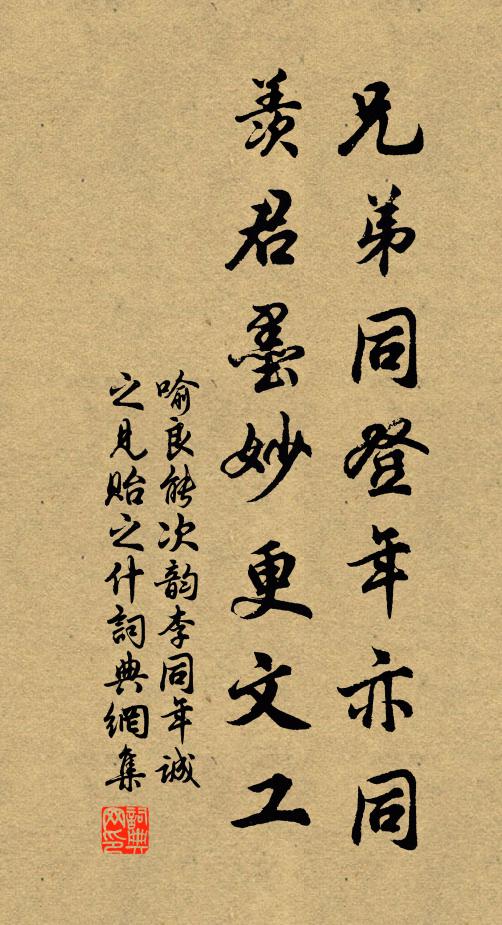 兄弟同登年亦同
羨君墨妙更文工
喻良能次韵李同年诚
之见贻之什詞典網集
詞典网印